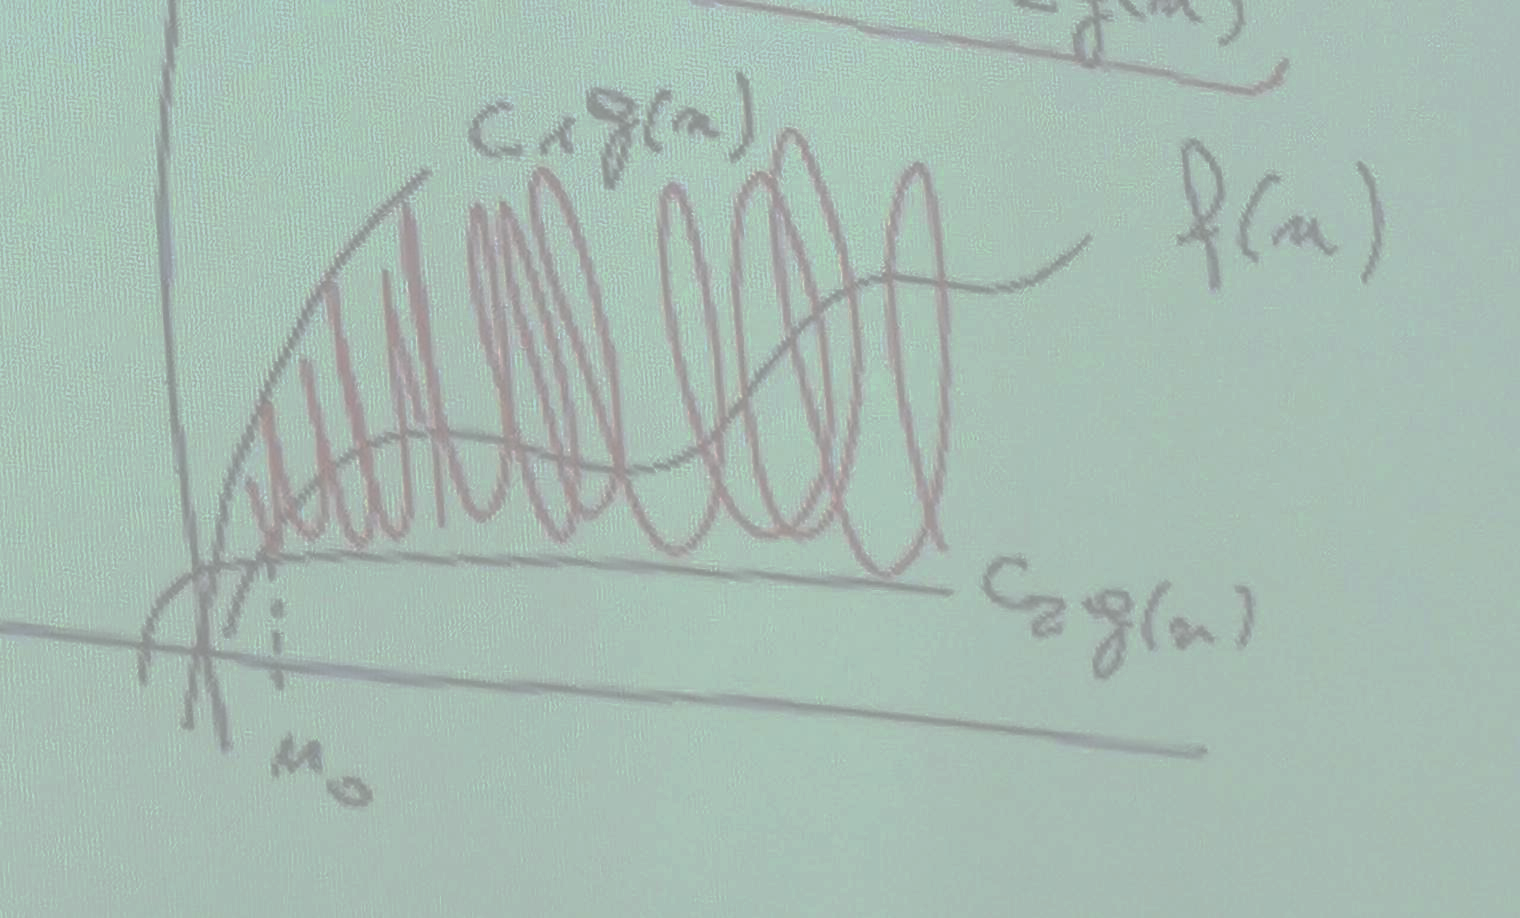 g(n)
C₁ g(n)
f(n)
C₂ g(n)
n₀